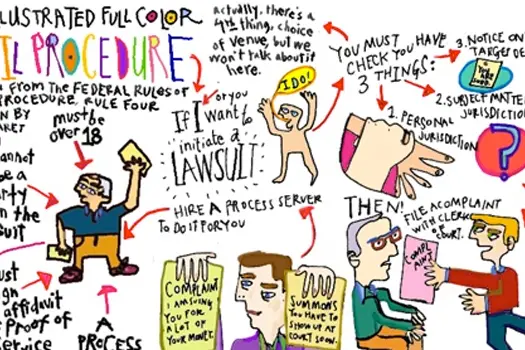 LUSTRATED FULL COLOR
IL PROCEDURE
FROM THE FEDERAL RULES OF
PROCEDURE, RULE FOUR
must be
over 18
actually, there's a
4th thing, choice
of venue, but we
won't talk about it
here.
I DO!
If
or you
I want
to
initiate a
LAWSUIT
YOU MUST
CHECK YOU HAVE
3 THINGS:
1. PERSONAL
JURISDICTION
2. SUBJECT MATTE
JURISDICTION
3. NOTICE ON
TARGET DE
HIRE A PROCESS SERVER
TO DO IT FOR YOU
COMPLAINT
I AM SUING
YOU FOR
A LOT OF
YOUR MONEY.
SUMMONS
YOU HAVE
TO SHOW UP
AT COURT SOON.
THEN!
FILE A COMPLAINT
WITH CLERK
OF
COURT.
COMPL
AINT.
A
PROCESS
affidavit